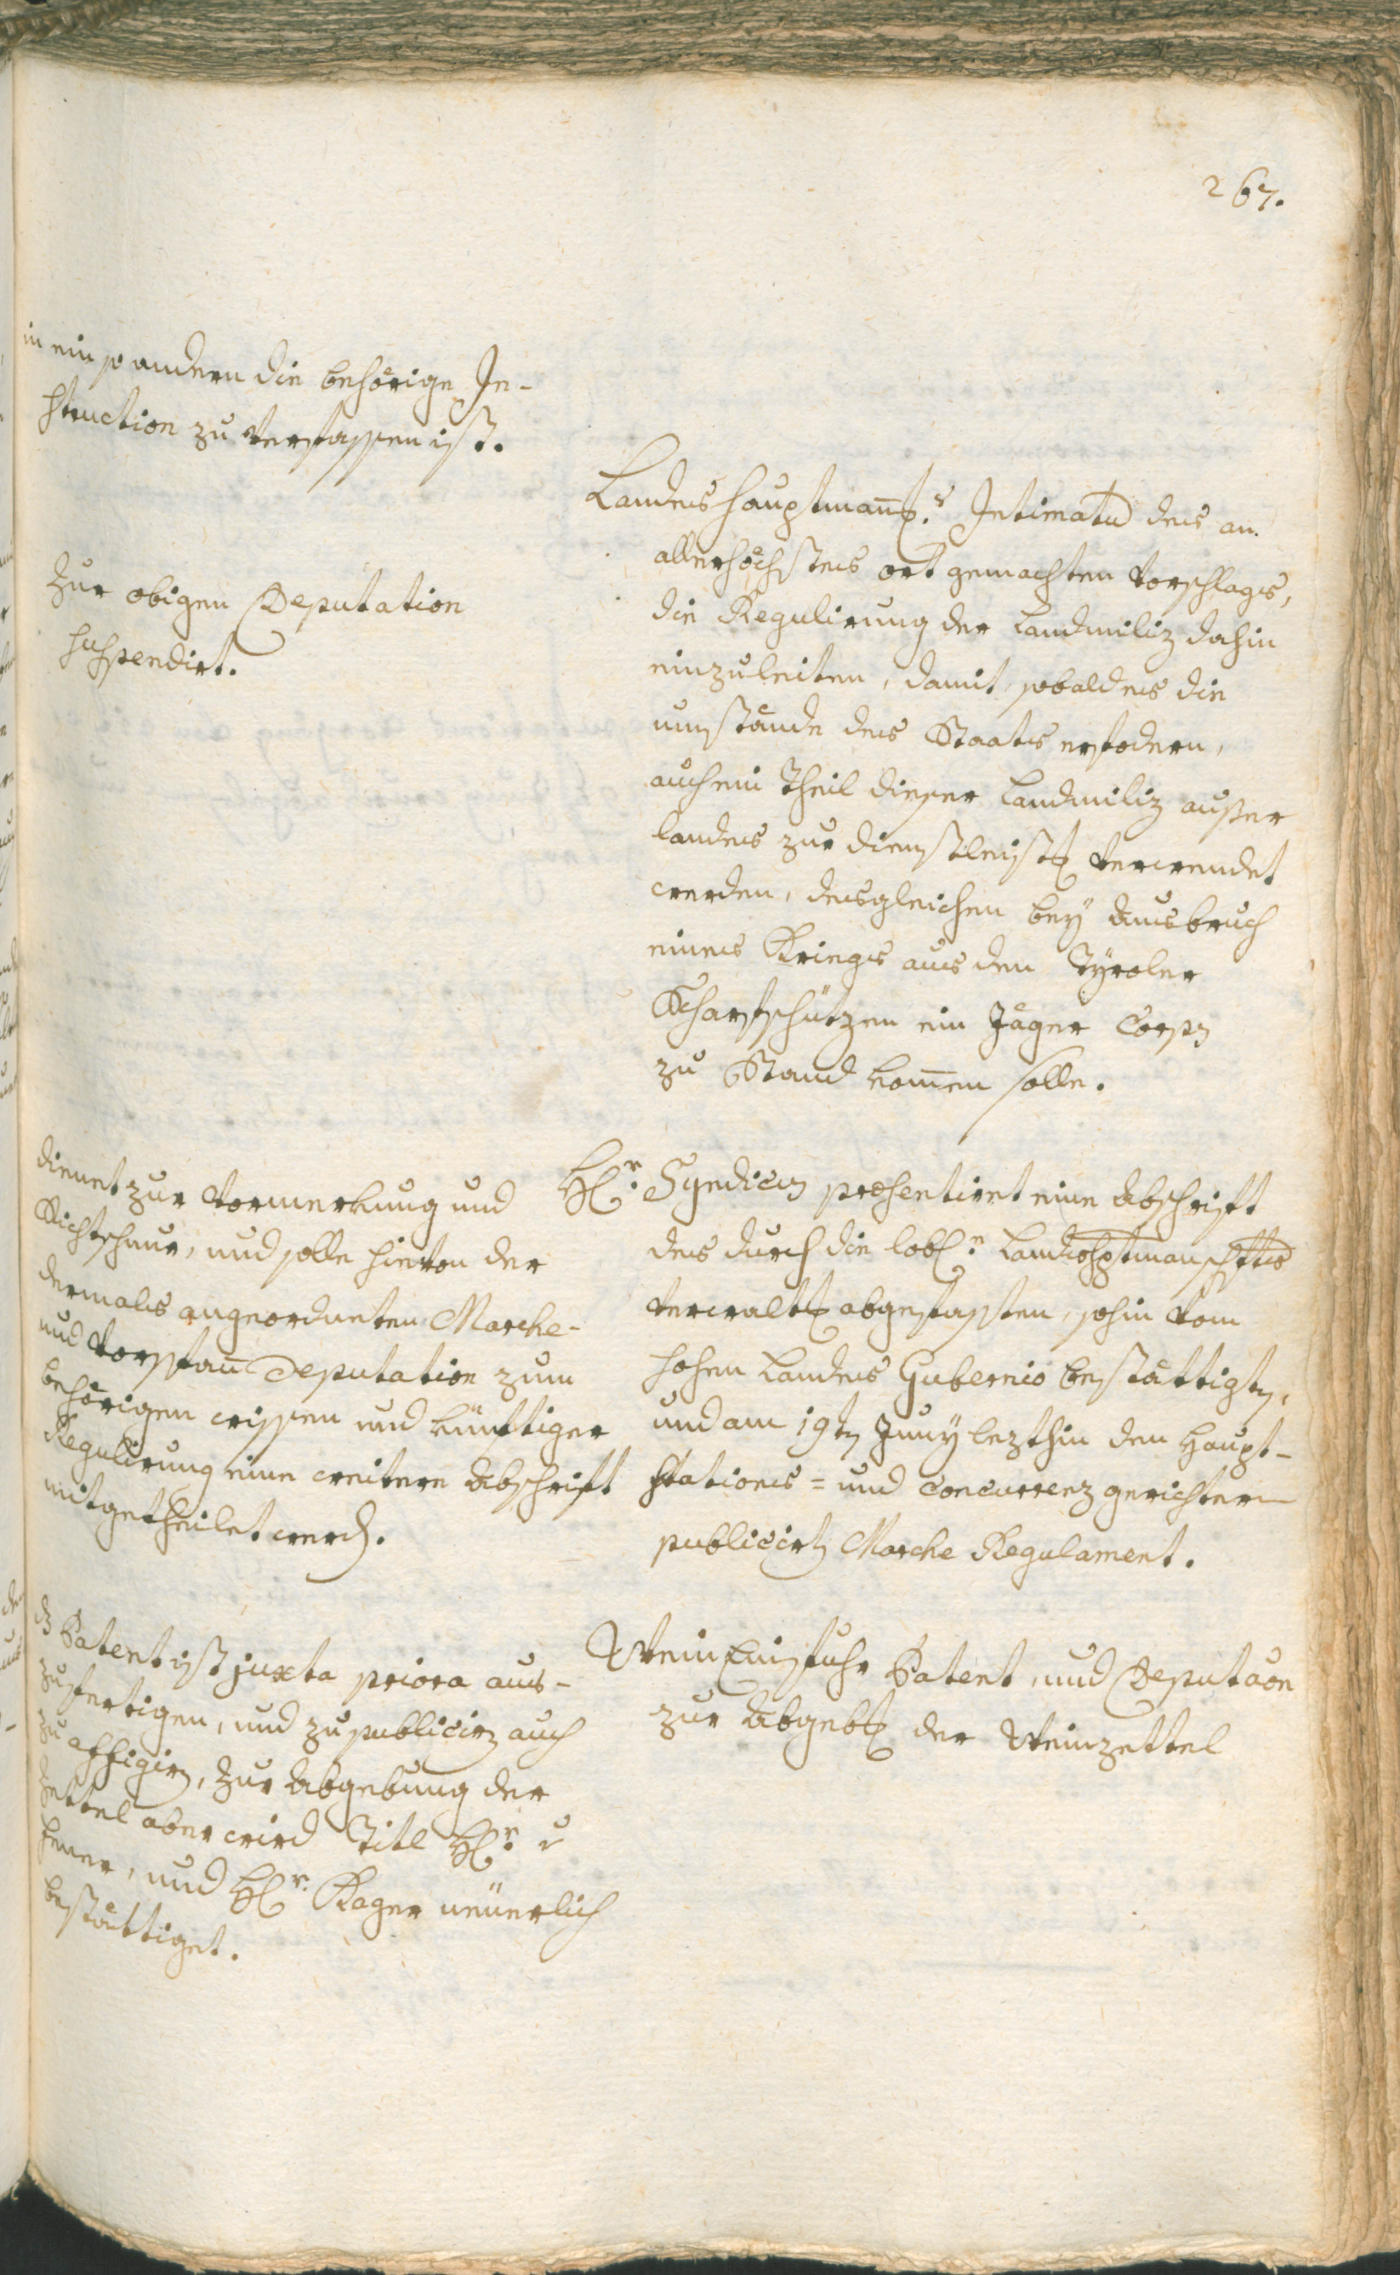 267.
in ein so andern die behörige In-
struction zu verfassen ist.
Landeshauptmañ. Intimatũ des an
allerhöchstes ort gemachten vorschlags,
die Regulirung der Landmiliz dahin
einzuleiten, damit, sobald es die
umstände des Staats erfodern,
auch ein Theil dieser Landmiliz ausser
landes zur dienstleist verwendet
werden, desgleichen beÿ Ausbruch
eines Kriegs aus den Tÿroler
Scharfschützen ein Jäger Corps
zu Stand kom̄en solle.
Zur obigen Deputation
suspendirt.
H.r Syndicus præsentiret eine Abschrift
des durch die lobl.e Landtshptmanschfts
verwalt abgefassten, sohin vom
hohen Landes Gubernio bestättigtn,
und am 19tn Junÿ lezthin den Haupt-
stations = und Concurrenz gerichtern
publicirtn Marche Regulament.
dienet zur Vormerkung und
Richtschnur, und solle hievon der
dermals angeordneten Marche-
und Vorspañ Deputation zum
behörigen wissen und künftiger
Regulirung eine weitere Abschrift
mitgetheilet werd.
Wein Einfuhr Patent, und Deputaon
zur Abgeb der Weinzettel
dz Patent ist juxta priora aus-
zufertigen, und zu publicirn auch
zu affigirn, zur Abgebung der
zettel aber wird Titl H.r v
, und H.r Kager neüerlich
bestättiget.